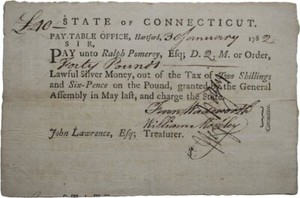 £40 STATE OF CONNECTICUT.
PAY-TABLE OFFICE, Hartford, 30 January 1782
SIR,
PAY unto Ralph Pomeroy, Esq; D. Q. M. or Order,
Forty Pounds
Lawful Silver Money, out of the Tax of Two Shillings
and Six-Pence on the Pound, granted by the General
Assembly in May last, and charge the State.
Fenn Wadsworth
William Moseley
John Lawrence, Esq; Treasurer.